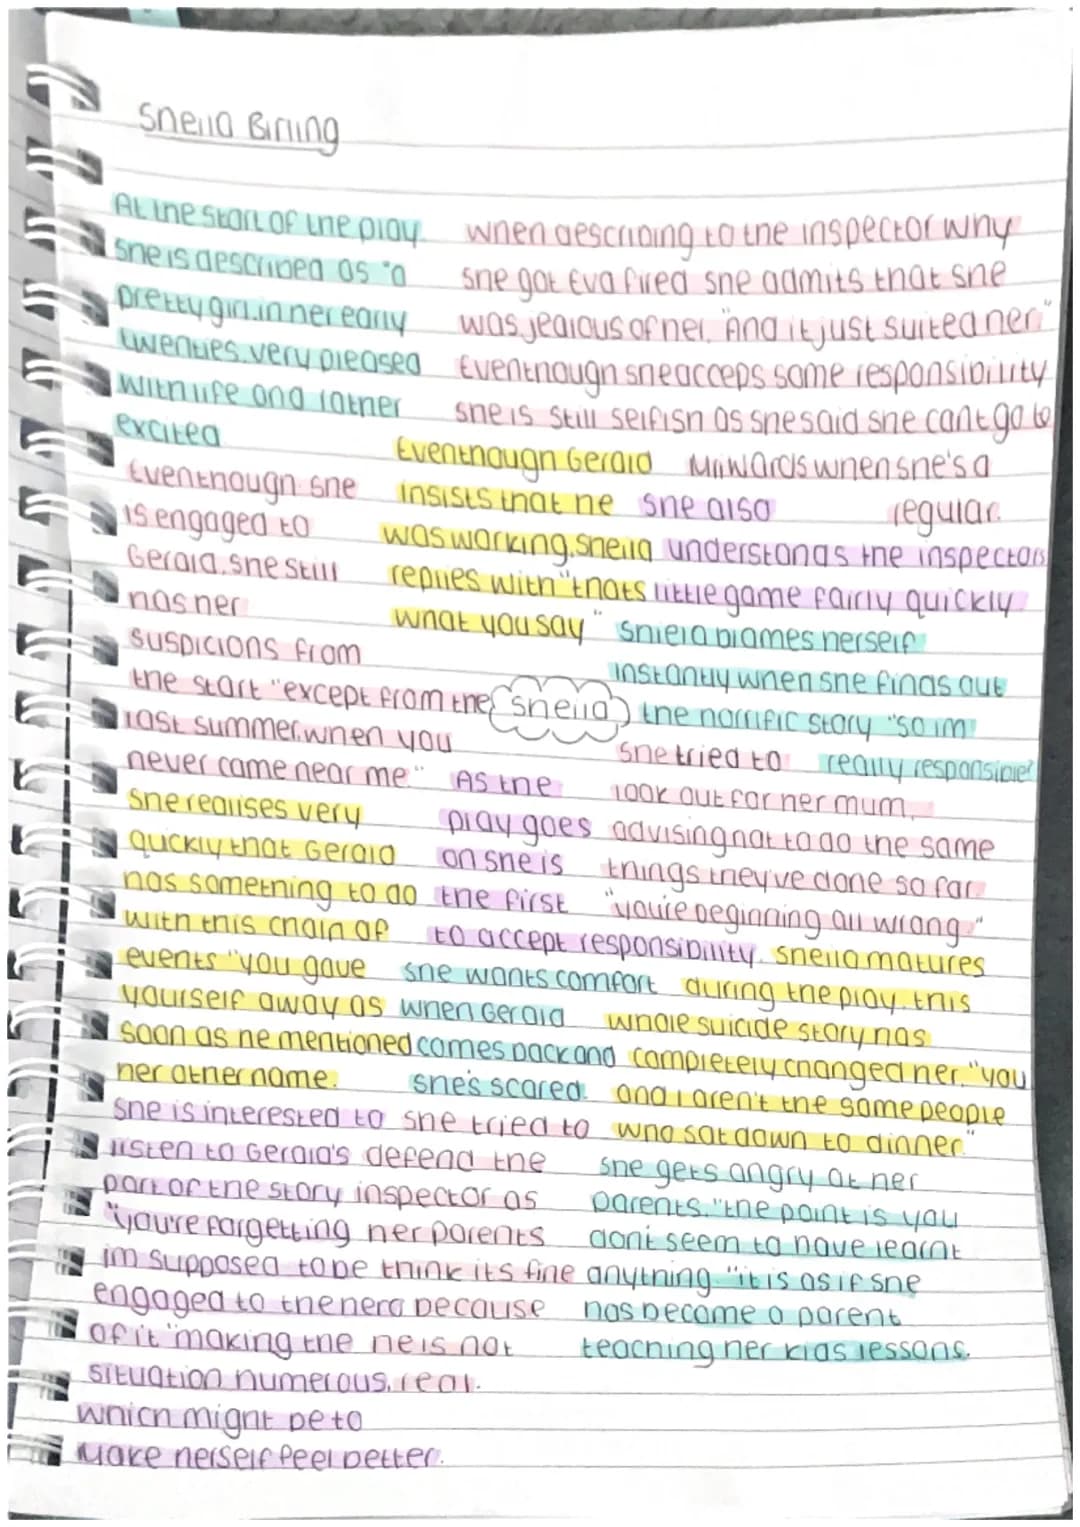 Sheila Birling
At the start of the play
she is described as "a
pretty girl in her early
twenties, very pleased
with life and rather
excited
when describing to the inspector why
she got Eva fired she admits that she
was jealous of her. "And it just suited her"
Eventhough she acceps some responsibility
she is still selfish as she said she cant go to
Milwards when she's a
regular.
Eventhough she
is engaged to
Gerald, she still
has her
suspicions from
the start "except from the
last summer, when you
never came near me."
Eventhough Gerald
insists that he
was working, sheila
replies with "thats
what you say"
she also
understands the inspectors
little game fairly quickly
Shiela blames herself
instantly when she finds out
the horrific story "so im
really responsible?
sheila
She tried to
look out for her mum,
advising not to do the same
things they've done so far.
"you're beginning all wrong."
As the
play goes
on she is
the first
to accept responsibility.
She realises very
quickly that Gerald
has something to do
with this chain of
events "you gave
yourself away as
soon as he mentioned
her other name.
she wants comfort
when Gerald
comes back and
she's scared.
sheila matures
during the play. this
whole suicide story has
completely changed her. "you
and I aren't the same people
who sat down to dinner."
she is interested to
listen to Gerald's
part of the story
"you're forgetting
im supposed to be
engaged to the hero
of it" making the
situation humerous,
which might be to
make herself feel better.
she tried to
defend the
inspector as
her parents
think its fine
because
he is not
real.
she gets angry at her
parents. "the point is you
don't seem to have learnt
anything "it is as if she
has become a parent
teaching her kids lessons.